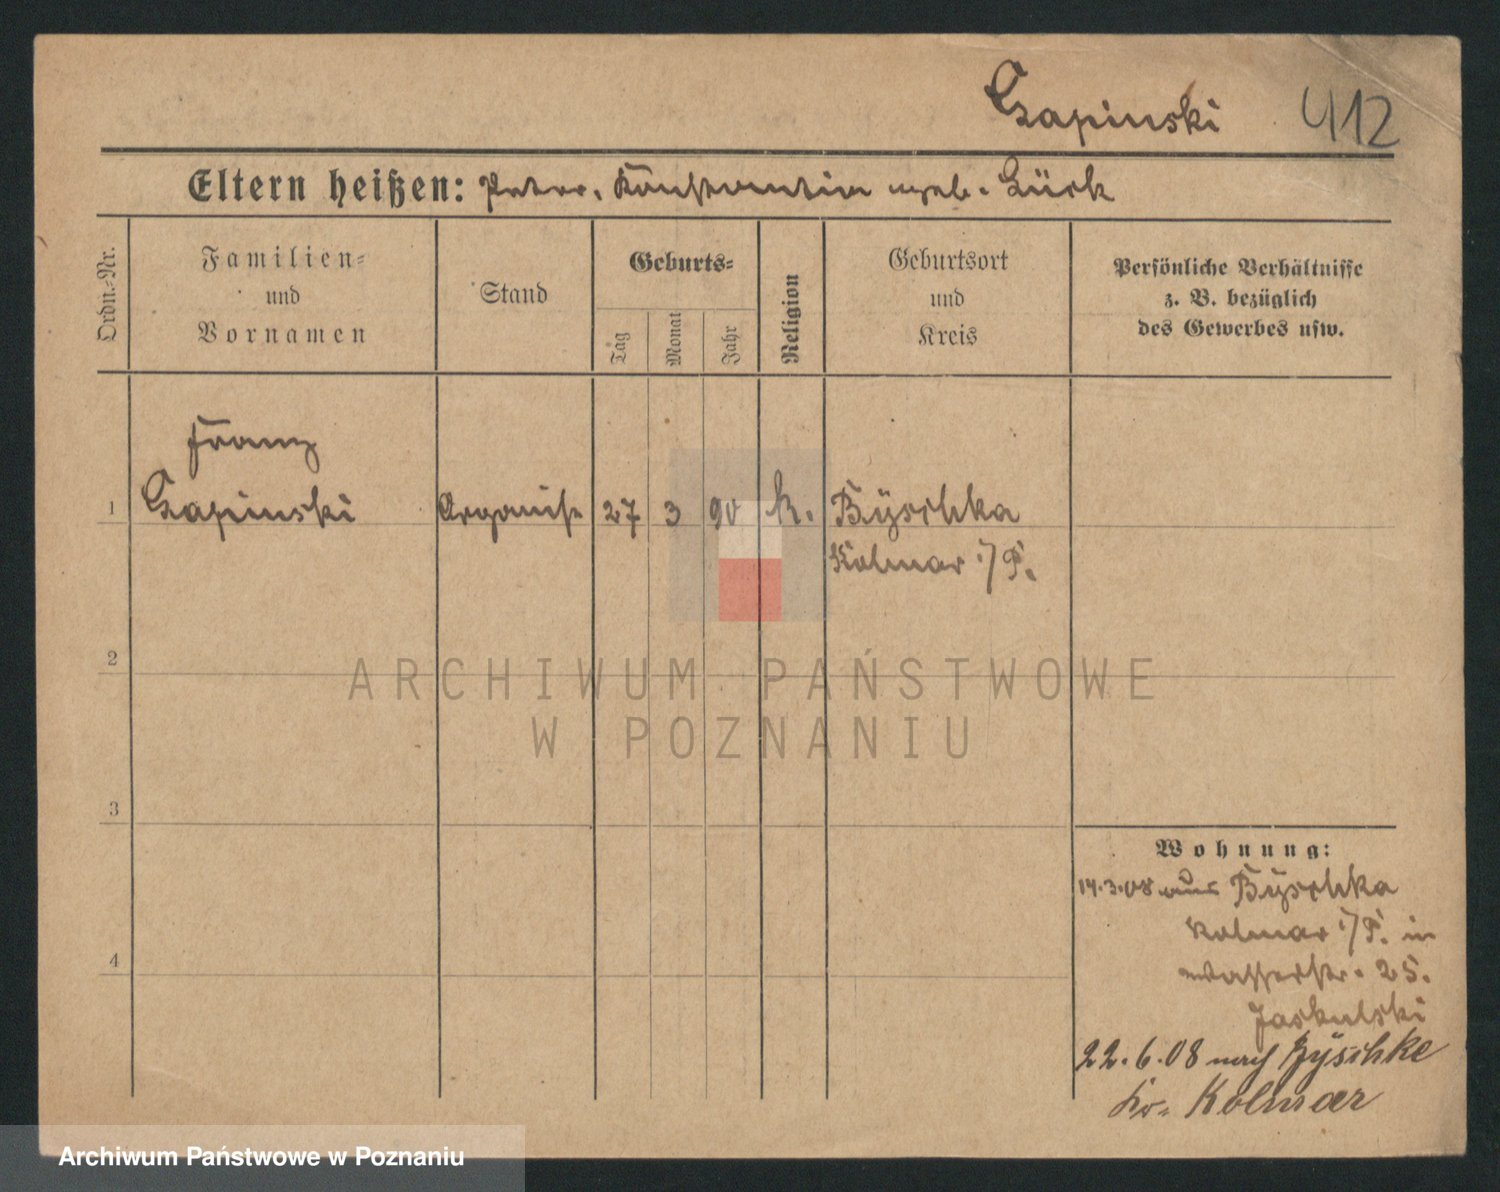 Czapinski 412
Eltern heißen: Peter, Konstantin geb. Gürk
Ordn.-Nr.
Familien-
und
Vornamen
Stand
Geburts-
Tag
Monat
Jahr
Religion
Geburtsort
und
Kreis
Persönliche Verhältnisse
z. B. bezüglich
des Gewerbes usw.
Franz
1 Czapinski Organist 27 3 90 k. Byschka
Kolmar i/P.
2
ARCHIWUM PAŃSTWOWE
W POZNANIU
3
Wohnung:
14.3.08 aus Byschka
Kolmar i/P. in
Wasserstr. 25.
Jaskulski
4
22.6.08 nach Byschke
Kr. Kolmar
Archiwum Państwowe w Poznaniu